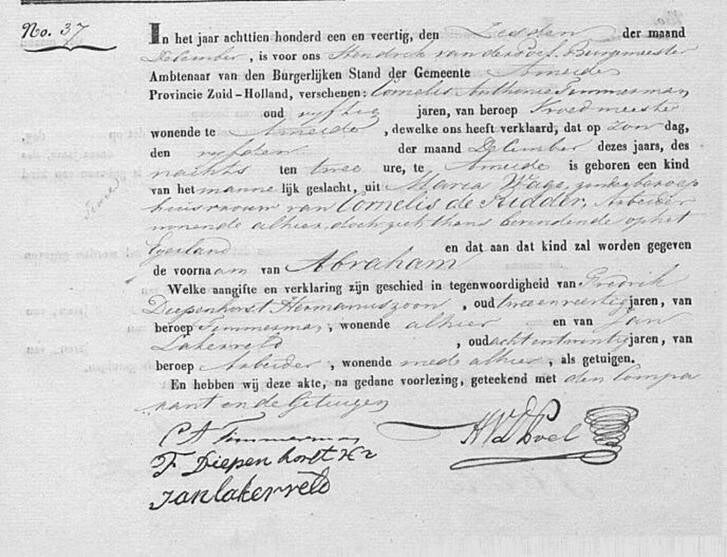 No. 37
In het jaar achttien honderd een en veertig, den Zesden der maand
December, is voor ons Hendrik van der Poel, Burgemeester
Ambtenaar van den Burgerlijken Stand der Gemeente Ameide
Provincie Zuid-Holland, verschenen: Cornelis Anthonie Timmerman
oud vyftig jaren, van beroep Vroedmeester
wonende te Ameide, dewelke ons heeft verklaard, dat op Zon dag,
den vyfden der maand December dezes jaars, des
nachts ten twee ure, te Ameide is geboren een kind
van het manne lijk geslacht, uit Maria Wage, zonder beroep
huisvrouw van Cornelis de Ridder, Arbeider
wonende alhier, doch zich thans bevindende op het
Eyerland en dat aan dat kind zal worden gegeven
de voornaam van Abraham
Welke aangifte en verklaring zijn geschied in tegenwoordigheid van Fredrik
Diepenhorst Hermanuszoon, oud twee en veertig jaren, van
beroep Timmerman, wonende alhier en van Jan
Lakerveld, oud acht en twintig jaren, van
beroep Arbeider, wonende mede alhier, als getuigen.
En hebben wij deze akte, na gedane voorlezing, geteekend met den Compa
rant en de Getuigen
C A Timmerman
HVDPoel
F Diepenhorst Hz
Jan Lakerveld